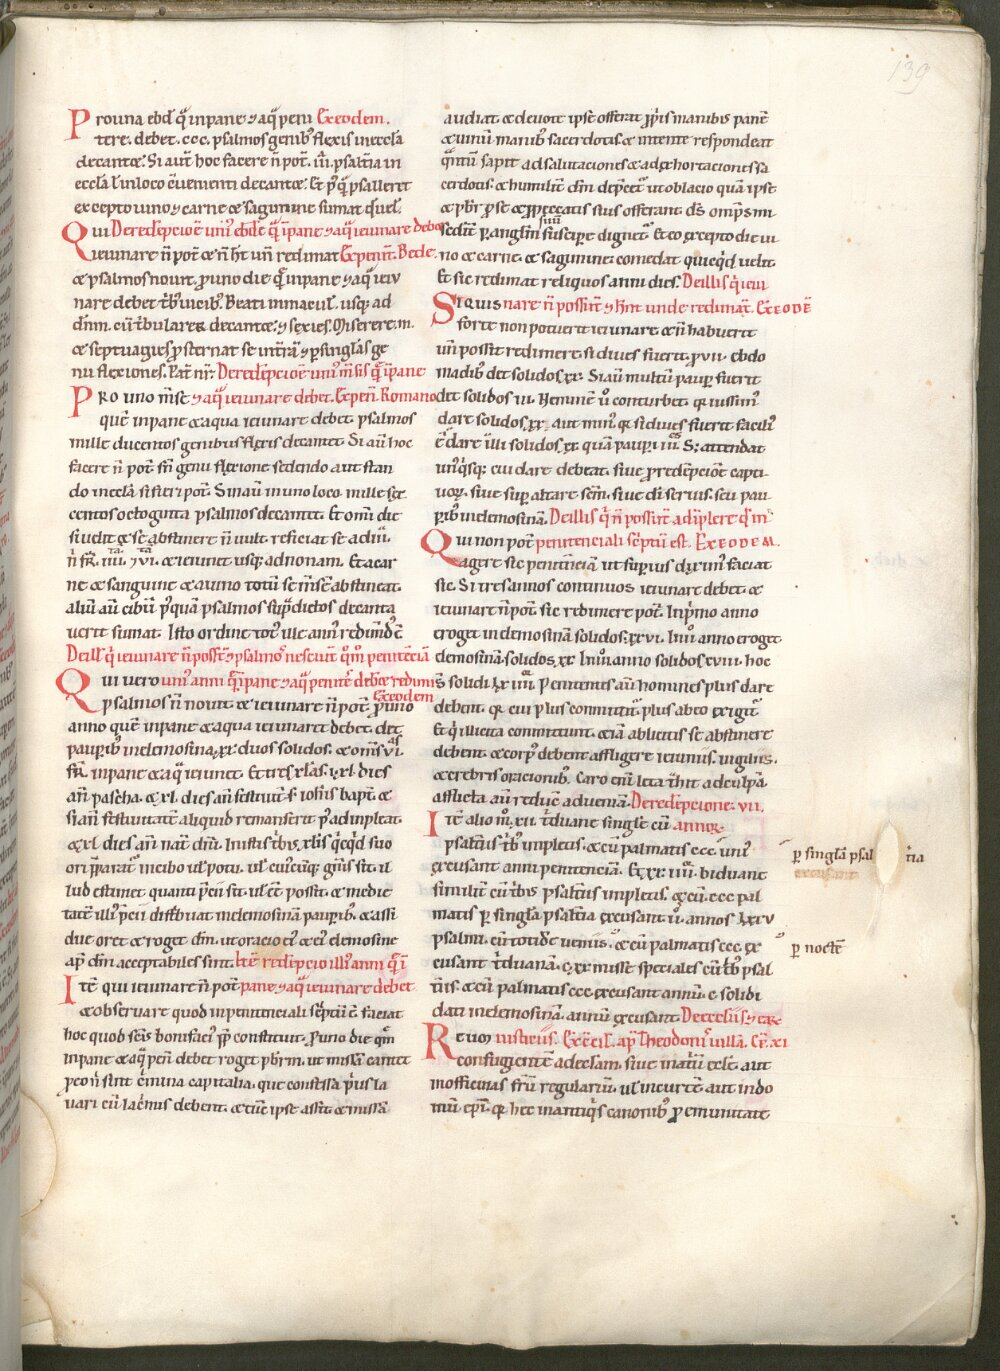 139
Pro una ebd̄ q̄ in pane ⁊ aq̄ peni Ex eodem.
tere debet .ccc. psalmos genib' flexis in eccla
decantet. Si aut̄ hoc facere n̄ pot̄. iii. psaltia in
eccla l in loco c̄uenienti decantet. Et p'q̄ psalleret
excepto uino ⁊ carne ⁊ sagimine sumat
Qui De redēpcioē uni' diei q̄ ī pane ⁊ aq̄ ieiunare debet
ieiunare n̄ pot̄ ⁊ n̄ ht̄ un̄ redimat Ex penit̄. Bede.
⁊ psalmos nouit. p uno die q̄ in pane ⁊ aq̄ ieiu
nare debet t'b' uicib'. Beati inmacul. usq; ad
dn̄m. cū t'bularer decantet. ⁊ sexies. Miserere. m.
⁊ septuagies p sternat se in trā ⁊ p singlas ge
nu flexiones. Pat̄ nr̄. De redēpcioē uni' m̄sis q̄ ī pane
Pro uno m̄se ⁊ aq̄ ieiunare debet. Ex peni. Romano
quē in pane ⁊ aqua ieiunare debet. psalmos
mille ducentos genibus flexis decantet. Si aū hoc
facere n̄ pot̄. sn̄ genu flexione sedendo aut stan
do in eccla si fieri pot̄. Sin aū in uno loco. mille sex
centos octoginta psalmos decantet. Et omi die
si uelit ⁊ se abstinere n̄ uult reficiat se ad iii.
n̄ fr̄. iiii. ⁊ vi. ⁊ ieiunet usq; ad nonam. Et a car
ne ⁊ sanguine ⁊ a uino totū se m̄se abstineat.
aliū aū cibū p'quā psalmos sup̄dictos decanta
uerit sumat. Isto ordine tot' ille ann' redimd' ē
De ill' q̄ ieiunare n̄ poss̄t ⁊ psalmo' nesciunt qm̄ penitēciā
Qui uero uni' anni q̄ ī pane ⁊ aq̄ penitē debet redimt
Ex eodem
psalmos n̄ nouit. ⁊ ieiunare n̄ pot̄. p uno
anno quē in pane ⁊ aqua ieiunare debet. det
paupib' in elemosina xx. duos solidos. ⁊ om̄s vi.
fr̄. in pane ⁊ aq̄ ieiunet. Et tres xl'as. i. xl. dies
an̄ pascha. ⁊ xl. dies an̄ festiuit̄. s̄. ioh̄is bapt̄. ⁊
si an̄ festiuitatē aliquid remanserit p' adimpleat.
⁊ xl. dies an̄ nat̄ dn̄i. In istis t'b'. xl'is q̄cq̄d suo
ori p̄parat' in cibo ul' potu. ul' cuiuscūq; gn̄is sit. il
lud estimet. quanti p̄cii sit. ul' ēē possit. ⁊ medie
tatē illi' p̄cii distbuat in elemosinā paupib'. ⁊ assi
due oret ⁊ roget dm̄. ut oracio ei' ⁊ ei' elemosine
ap̄ dm̄ acceptabiles sint. Itē redēpcio illi' anni q̄ ī
Itē qui ieiunare n̄ pot̄ pane ⁊ aq̄ ieiunare debet
⁊ obseruare quod in penitenciali sc̄ptū ē. faciat
hoc quod sc̄is bonifaci' pp̄ constituit. P uno die qm̄
in pane ⁊ aq̄ peni debet roget pbr̄m. ut missā cantet
p eo n̄ sint c̄mina capitalia. que confessa p'us la
uari cū lac'mis debent. ⁊ tūc ipse assit. ⁊ missā
audiat. ⁊ deuote ipse offerat pp̄is manibus panē
⁊ uinū manib' sacerdotis. ⁊ intente respondeat
q̄ntū sapit ad salutaciones ⁊ ad exhortaciones sa
cerdotis. ⁊ humilit̄ dm̄ dep̄cet' ut oblacio quā ipse
⁊ pbr̄ p se ⁊ p peccatis suis offerant. ds̄ omp̄s mi
sedit̄ p anglm̄ suū suscipe dignet̄. Et eo excepto die ui
no ⁊ carne ⁊ sagimine. comedat quicq̄d uelit.
Et sic redimat reliquos anni dies. De illis q̄ ieiu
Si quis nare n̄ possūt ⁊ hn̄t unde redimāt. Ex eodē
forte non potuerit ieiunare ⁊ n̄ habuerit
un̄ possit redimere. si diues fuerit. p vii. ebdo
madib' det solidos. xx. Si aū multū paup fuerit
det solidos iii. Neminē u' conturbet. qr iussim'
dare solidos. xx. aut min'. qr si diues fuerit facili'
ē dare illi solidos. xx. quā paupi iii. S; attendat
un'qsq; cui dare debeat. siue p redēpcioē capti
uor. siue sup altare scm̄. siue di seruis. seu pau
pib' in elemosinā. De illis q̄ n̄ possūt adīplere q̄ in
Qui non pot̄ penitenciali sc̄ptū est. Ex eodem.
agere sic penitēciā ut supius dixim' faciat
sic. Si tres annos continuos ieiunare debet ⁊
ieiunare n̄ pot̄. sic redimere pot̄. In p'mo anno
eroget in elemosinā solidos. xxvi. In ii'. anno eroget
in elemosinā. solidos. xx. In iii'. anno solidos. xviii. hoc
s̄. solidi lxiiii. Potentes aū homines plus dare
debent. qr cui plus committit̄. plus ab eo exigit̄.
Et q̄ illicita committunt. ⁊iā a licitis se abstinere
debent. ⁊ corp' debent affligere ieiuniis. uigiliis.
⁊ crebris oracionib'. Caro eni leta t'hit ad culpā.
afflicta aū reduc' ad ueniā. De redēpcione. vii.
Itē alio m°. xii. t'duane single cū annor.
psaltiis t'b' impletis. ⁊ cū palmatis ccc. uni'
excusant anni penitenciā. Et xxiiii. biduane
similit̄ cū t'bis psaltiis impletis. ⁊ cū. ccc. pal
matis p singla psaltia excusant ii. annos. lxxv
psalmi. cū totidē ueniis. ⁊ cū palmatis ccc. ex
cusant t'duanā. cxx. misse speciales cū t'b' psal
tiis. ⁊ cū palmatis ccc. excusant annū. c. solidi
dati in elemosinā. annū excusant. De ecclesiis ⁊ ear
Reum iusticiis. Ex cc̄il. ap̄ Theodonis uillā. Cp. xi
confugientē ad ecclam. siue in atriū eccl'e. aut
in officinas fr̄m regulariū. ul' in curtē. aut in do
mū ep̄i. qr hec in antiq̄s canonib' p emunitate
p singla psal tia
excusant
p noctē